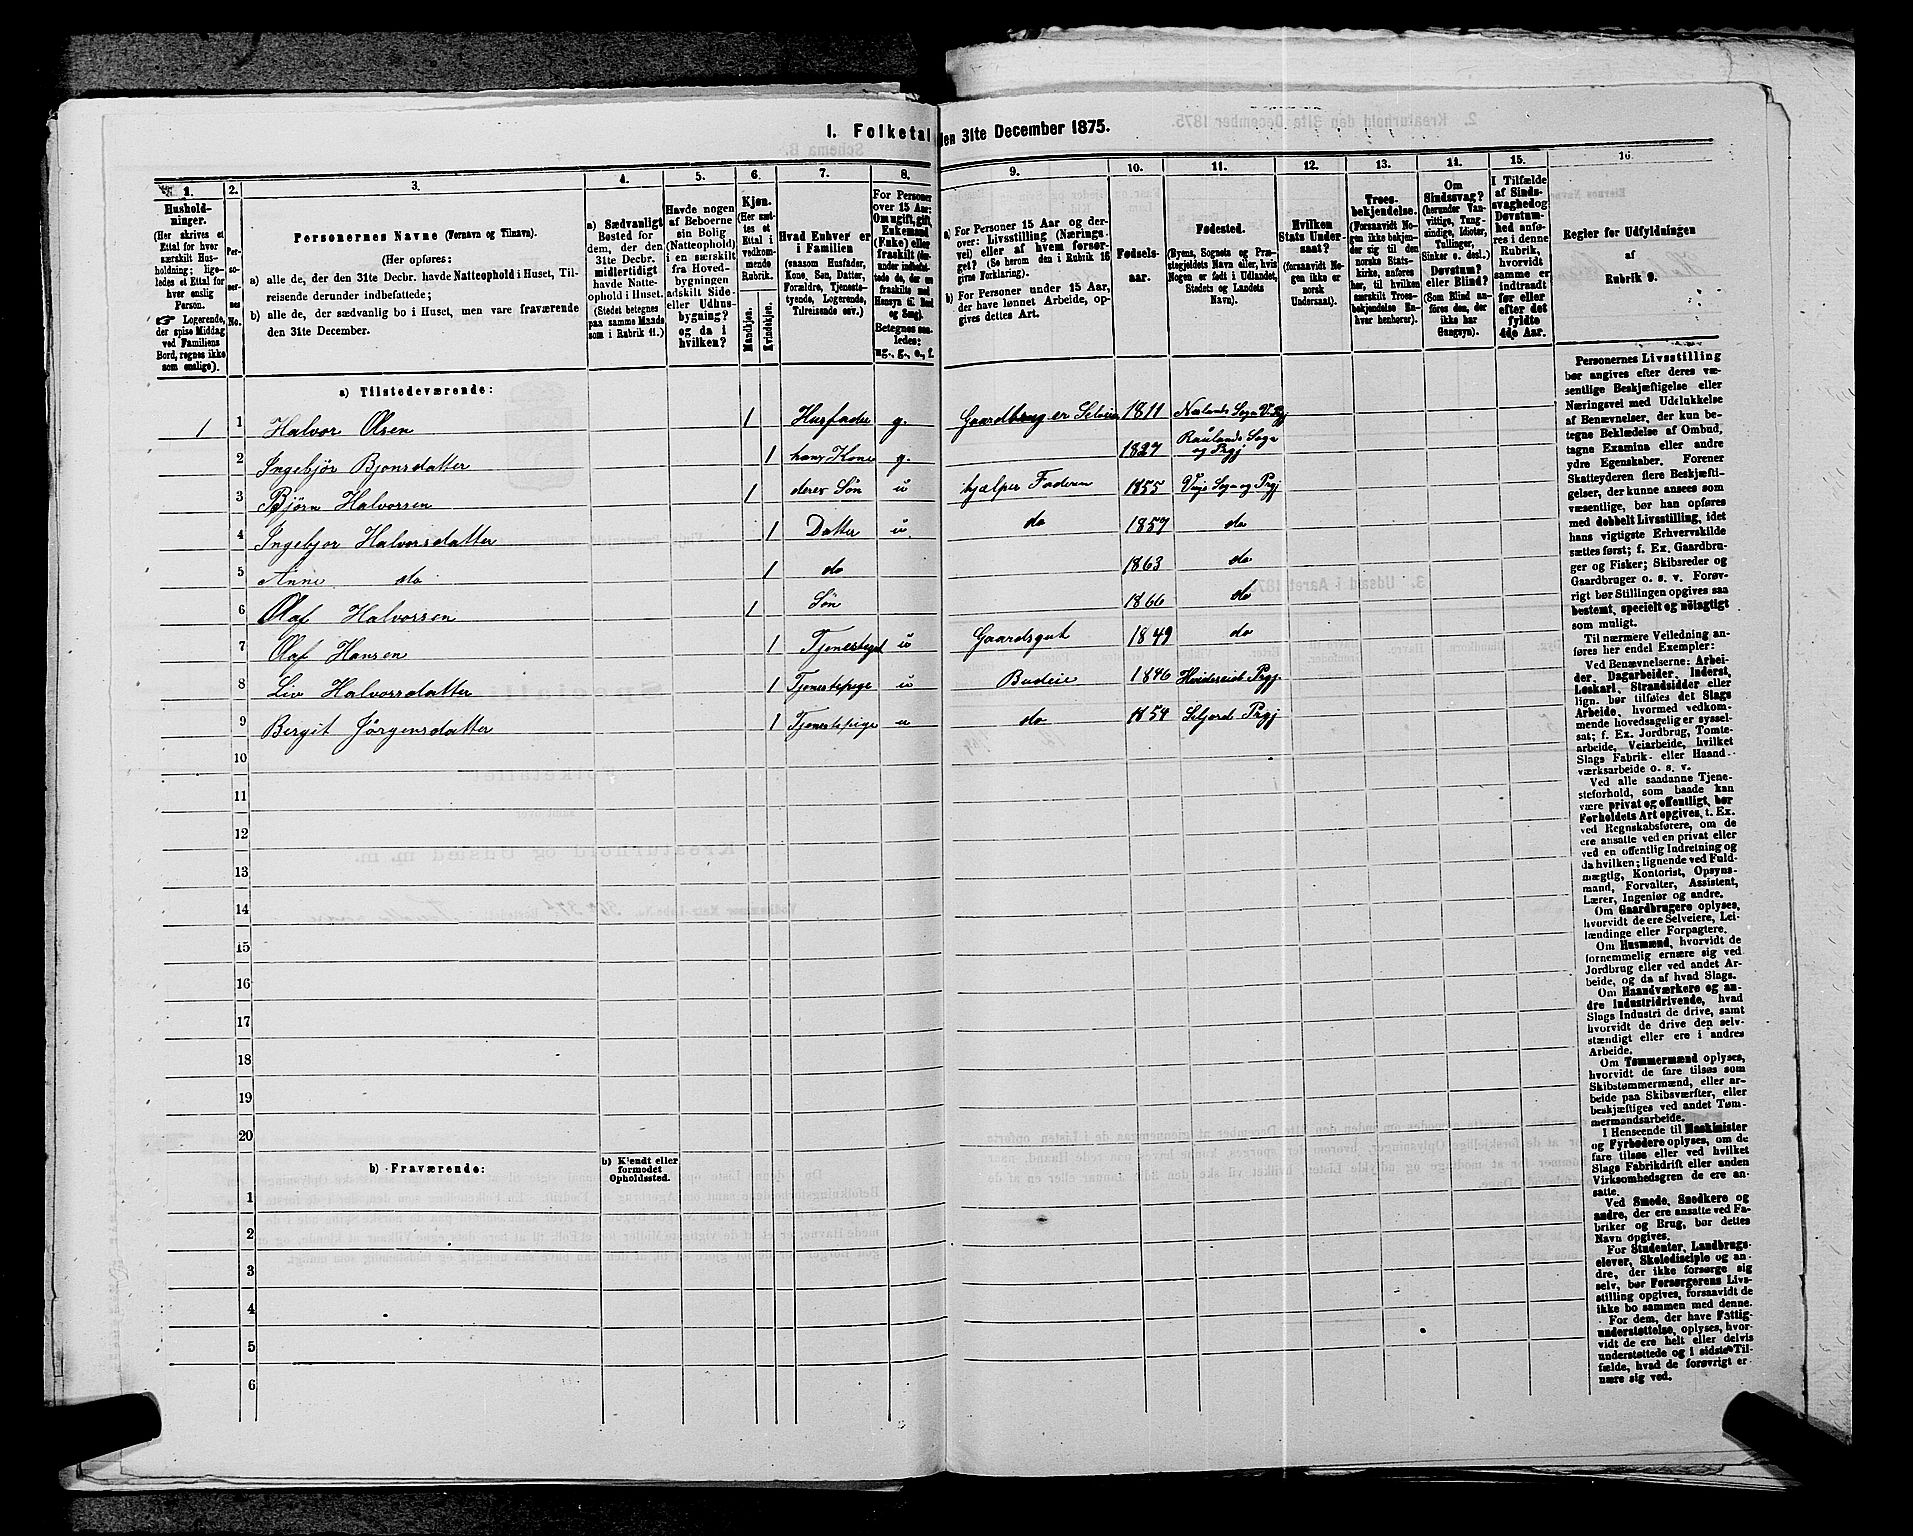 1. Folketal den 31te December 1875.
1.
2.
3.
4.
5.
6.
7.
8.
9.
10.
11.
12.
13.
14.
15.
16.
Husholdninger.
(Her skrives et
Ettal for hver
særskilt Husholdning;
ligeledes et Ettal for
hver enslig
Person.
☞ Logerende,
der spise Middag
ved Familiens
Bord, regnes ikke
som enslige).
Personernes No.
Personernes Navne (Fornavn og Tilnavn).
(Her opføres:
a) alle de, der den 31te Decbr. havde Natteophold i Huset, Tilreisende
derunder indbefattede;
b) alle de, der sædvanlig bo i Huset, men vare fraværende
den 31te December.
a) Sædvanligt
Bosted for
dem, der den
31te Decbr.
midlertidigt
havde Natteophold
i Huset.
(Stedet betegnes
paa samme Maade
som i Rubrik 11.)
Havde nogen
af Beboerne
sin Bolig
(Natteophold)
i en særskilt
fra Hovedbygningen
adskilt Side-
eller Udhusbygning?
og da i
hvilken?
Kjøn.
(Her sættes
et
Ettal i
vedkommende
Rubrik.
Mandkjøn.
Kvindekjøn.
Hvad Enhver er
i Familien
(saasom Husfader,
Kone, Søn, Datter,
Forældre, Tjenestetyende,
Logerende,
Tilreisende osv.)
For Personer
over 15 Aar:
Om ugift, gift
Enkemand
(Enke) eller
fraskilt
Betegnes saaledes:
ug., g., e., f.
a) For Personer 15 Aar og derover:
Livsstilling (Næringsvei)
eller af hvem forsørget?
(Se herom den i Rubrik 16
givne Forklaring).
b) For Personer under 15 Aar,
der have lønnet Arbeide, opgives
dettes Art.
Fødselsaar.
Fødested.
(Byens, Sognets og Præstegjeldets
Navn eller, hvis
Nogen er født i Udlandet,
Stedets og Landets
Navn).
Hvilken
Stats Undersaat?
(forsaavidt Nogen
ikke er
norsk
Undersaat).
Troesbekjendelse.
(Forsaavidt Nogen
ikke bekjender
sig til den
norske Statskirke,
anføres
her, til hvilken
særskilt Troesbekjendelse
Enhver
henhører).
Om
Sindssvag?
(herunder Vanvittige,
Tungsindige,
Idioter,
Tullinger,
Sinker o. desl.).
Døvstum?
eller Blind?
(Som Blind anføres
den, der
ikke har
Gangsyn).
I Tilfælde
af Sindssvaghed
og
Døvstumhed
anføres
i denne
Rubrik,
hvorvidt
samme er
indtraadt
før eller
efter det
fyldte
4de Aar.
Regler for Udfyldningen
af
Rubrik 9.
a) Tilstedeværende:
1 1 Halvor Olsen 1 Husfader g. Gaardbruger Selveier 1811
2 Ingebjør Bjonsdatter 1 hans Kone g. 1827 Raulands Sogn og Prgj
3 Bjørn Halvorsen 1 deres Søn u hjælper Faderen 1855 Vinje Sogn og Prgj
4 Ingebjor Halvorsdatter 1 Datter u do 1857 do
5 Anne do 1 do 1863 do
6 Olaf Halvorsen 1 Søn 1866 do
7 Olaf Hansen 1 u Gaardsgut 1849 do
8 Liv Halvorsdatter 1 Tjenestepige u Budeie 1846 Hvideseid Prgj
9 Bergit Jørgensdatter 1 Tjenestepige u do 1854 Seljord Prgj
10
11
12
13
14
15
16
17
18
19
20
b) Fraværende:
b) Kjendt eller
formodet
Opholdssted.
1
2
3
4
5
6
Personernes Livsstilling
bør angives efter deres væsentlige
Beskjæftigelse eller
Næringsvei med Udelukkelse
af Benævnelser, der kun betegne
Beklædelse af Ombud,
tagne Examina eller andre
ydre Egenskaber. Forener
Skatteyderen flere Beskjæftigelser,
der kunne ansees som
væsentlige, bør han opføres
med dobbelt Livsstilling, idet
hans vigtigste Erhvervskilde
sættes først; f. Ex. Gaardbruger
og Fisker; Skibsreder og
Gaardbruger o. s. v. Forøvrigt
bør Stillingen opgives saa
bestemt, specielt og nøiagtigt
som muligt.
Til nærmere Veiledning anføres
her endel Exempler:
Ved Benævnelserne: Arbeider,
Dagarbeider, Inderst,
Løskarl, Strandsidder eller
lign. bør tilføies det Slags
Arbeide, hvormed vedkommende
hovedsagelig er sysselsat;
f. Ex. Jordbrug, Tomtearbeide,
Veiarbeide, hvilket
Slags Fabrik- eller Haandværksarbeide
o. s. v.
Ved alle saadanne Tjenesteforhold,
som baade kan
være privat og offentligt, bør
Forholdets Art opgives, f. Ex.
ved Regnskabsførere, om de
ere ansatte ved en privat eller
ved en offentlig Indretning og
da hvilken; lignende ved Fuldmægtig,
Kontorist, Opsynsmand,
Forvalter, Assistent,
Lærer, Ingeniør og andre.
Om Gaardbrugere oplyses,
hvorvidt de ere Selveiere, Leilændinge
eller Forpagtere.
Om Husmænd, hvorvidt de
fornemmelig ernære sig ved
Jordbrug eller ved andet Arbeide,
og da af hvad Slags.
Om Haandværkere og andre
Industridrivende, hvad
Slags Industri de drive, samt
hvorvidt de drive den selvstændigt
eller ere i andres
Arbeide.
Om Tømmermænd oplyses,
hvorvidt de fare tilsøs som
Skibstømmermænd, eller arbeide
paa Skibsværfter, eller
beskjæftiges ved andet Tømmermandsarbeide.
I Henseende til Maskinister
og Fyrbødere oplyses, om de
fare tilsøs eller ved hvilket
Slags Fabrikdrift eller anden
Virksomhedsgren de ere ansatte.
Ved Smede, Snedkere og
andre, der ere ansatte ved Fabriker
og Brug, bør dettes
Navn opgives.
For Studenter, Landbrugselever,
Skoledisciple og andre,
der ikke forsørge sig
selv, bør Forsørgerens Livsstilling
opgives, forsaavidt de
ikke bo sammen med denne.
For dem, der have Fattigunderstøttelse,
oplyses, hvorvidt
de ere helt eller delvis
understøttede og i sidste Tilfælde,
hvad de forøvrigt ernære
sig ved.